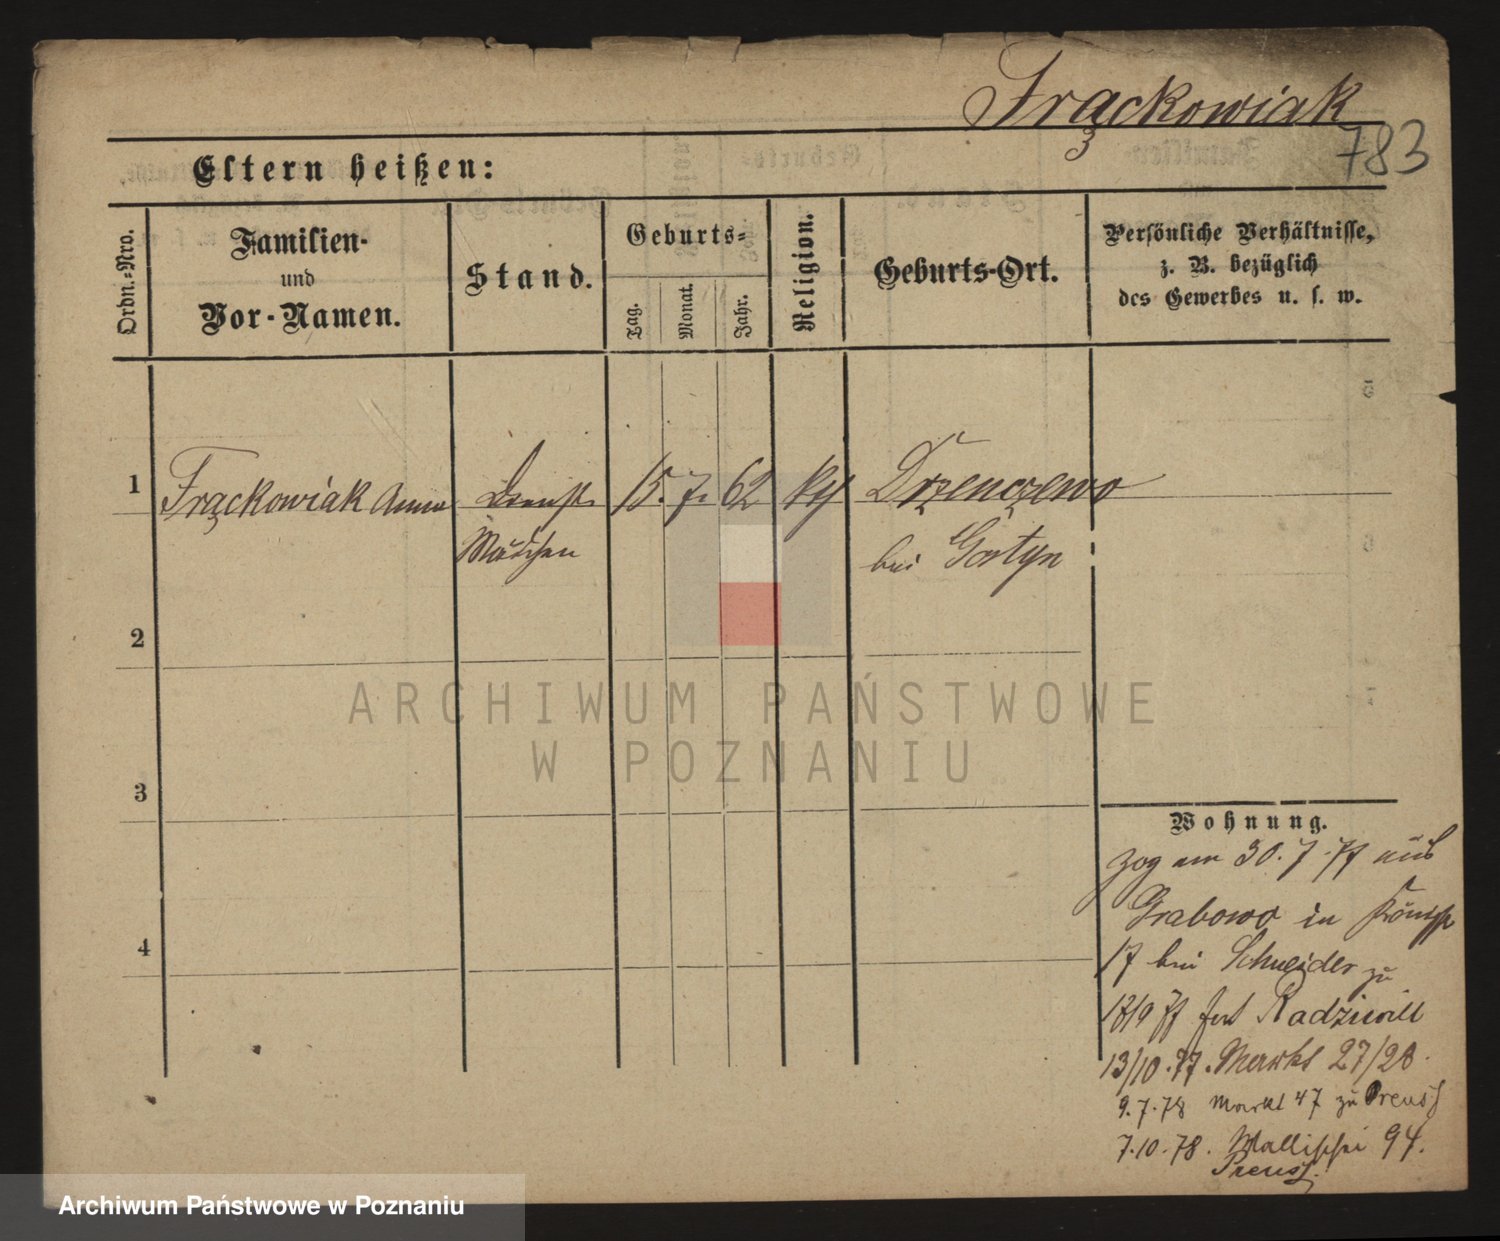 Frąckowiak
783
Eltern heißen:
Ordn.-Nro.
Familien-
und
Vor-Namen.
Stand.
Geburts-
Tag.
Monat.
Jahr.
Religion.
Geburts-Ort.
Persönliche Verhältnisse,
z. B. bezüglich
des Gewerbes u. s. w.
1
Frąckowiak Anna
Dienst
Mädchen
15. 7. 62
kth
Drzenczewo
bei Gostyn
2
3
4
ARCHIWUM PAŃSTWOWE
W POZNANIU
Wohnung.
zog am 30. 7. 77 aus
Grabowo in
17 bei Schneider zu
18/9 77 Radziwill
13/10. 77. Markt 27/28.
9. 7. 78 Markt 47 zu Preuss
7. 10. 78. Wallischei 94.
Preuss.
Archiwum Państwowe w Poznaniu